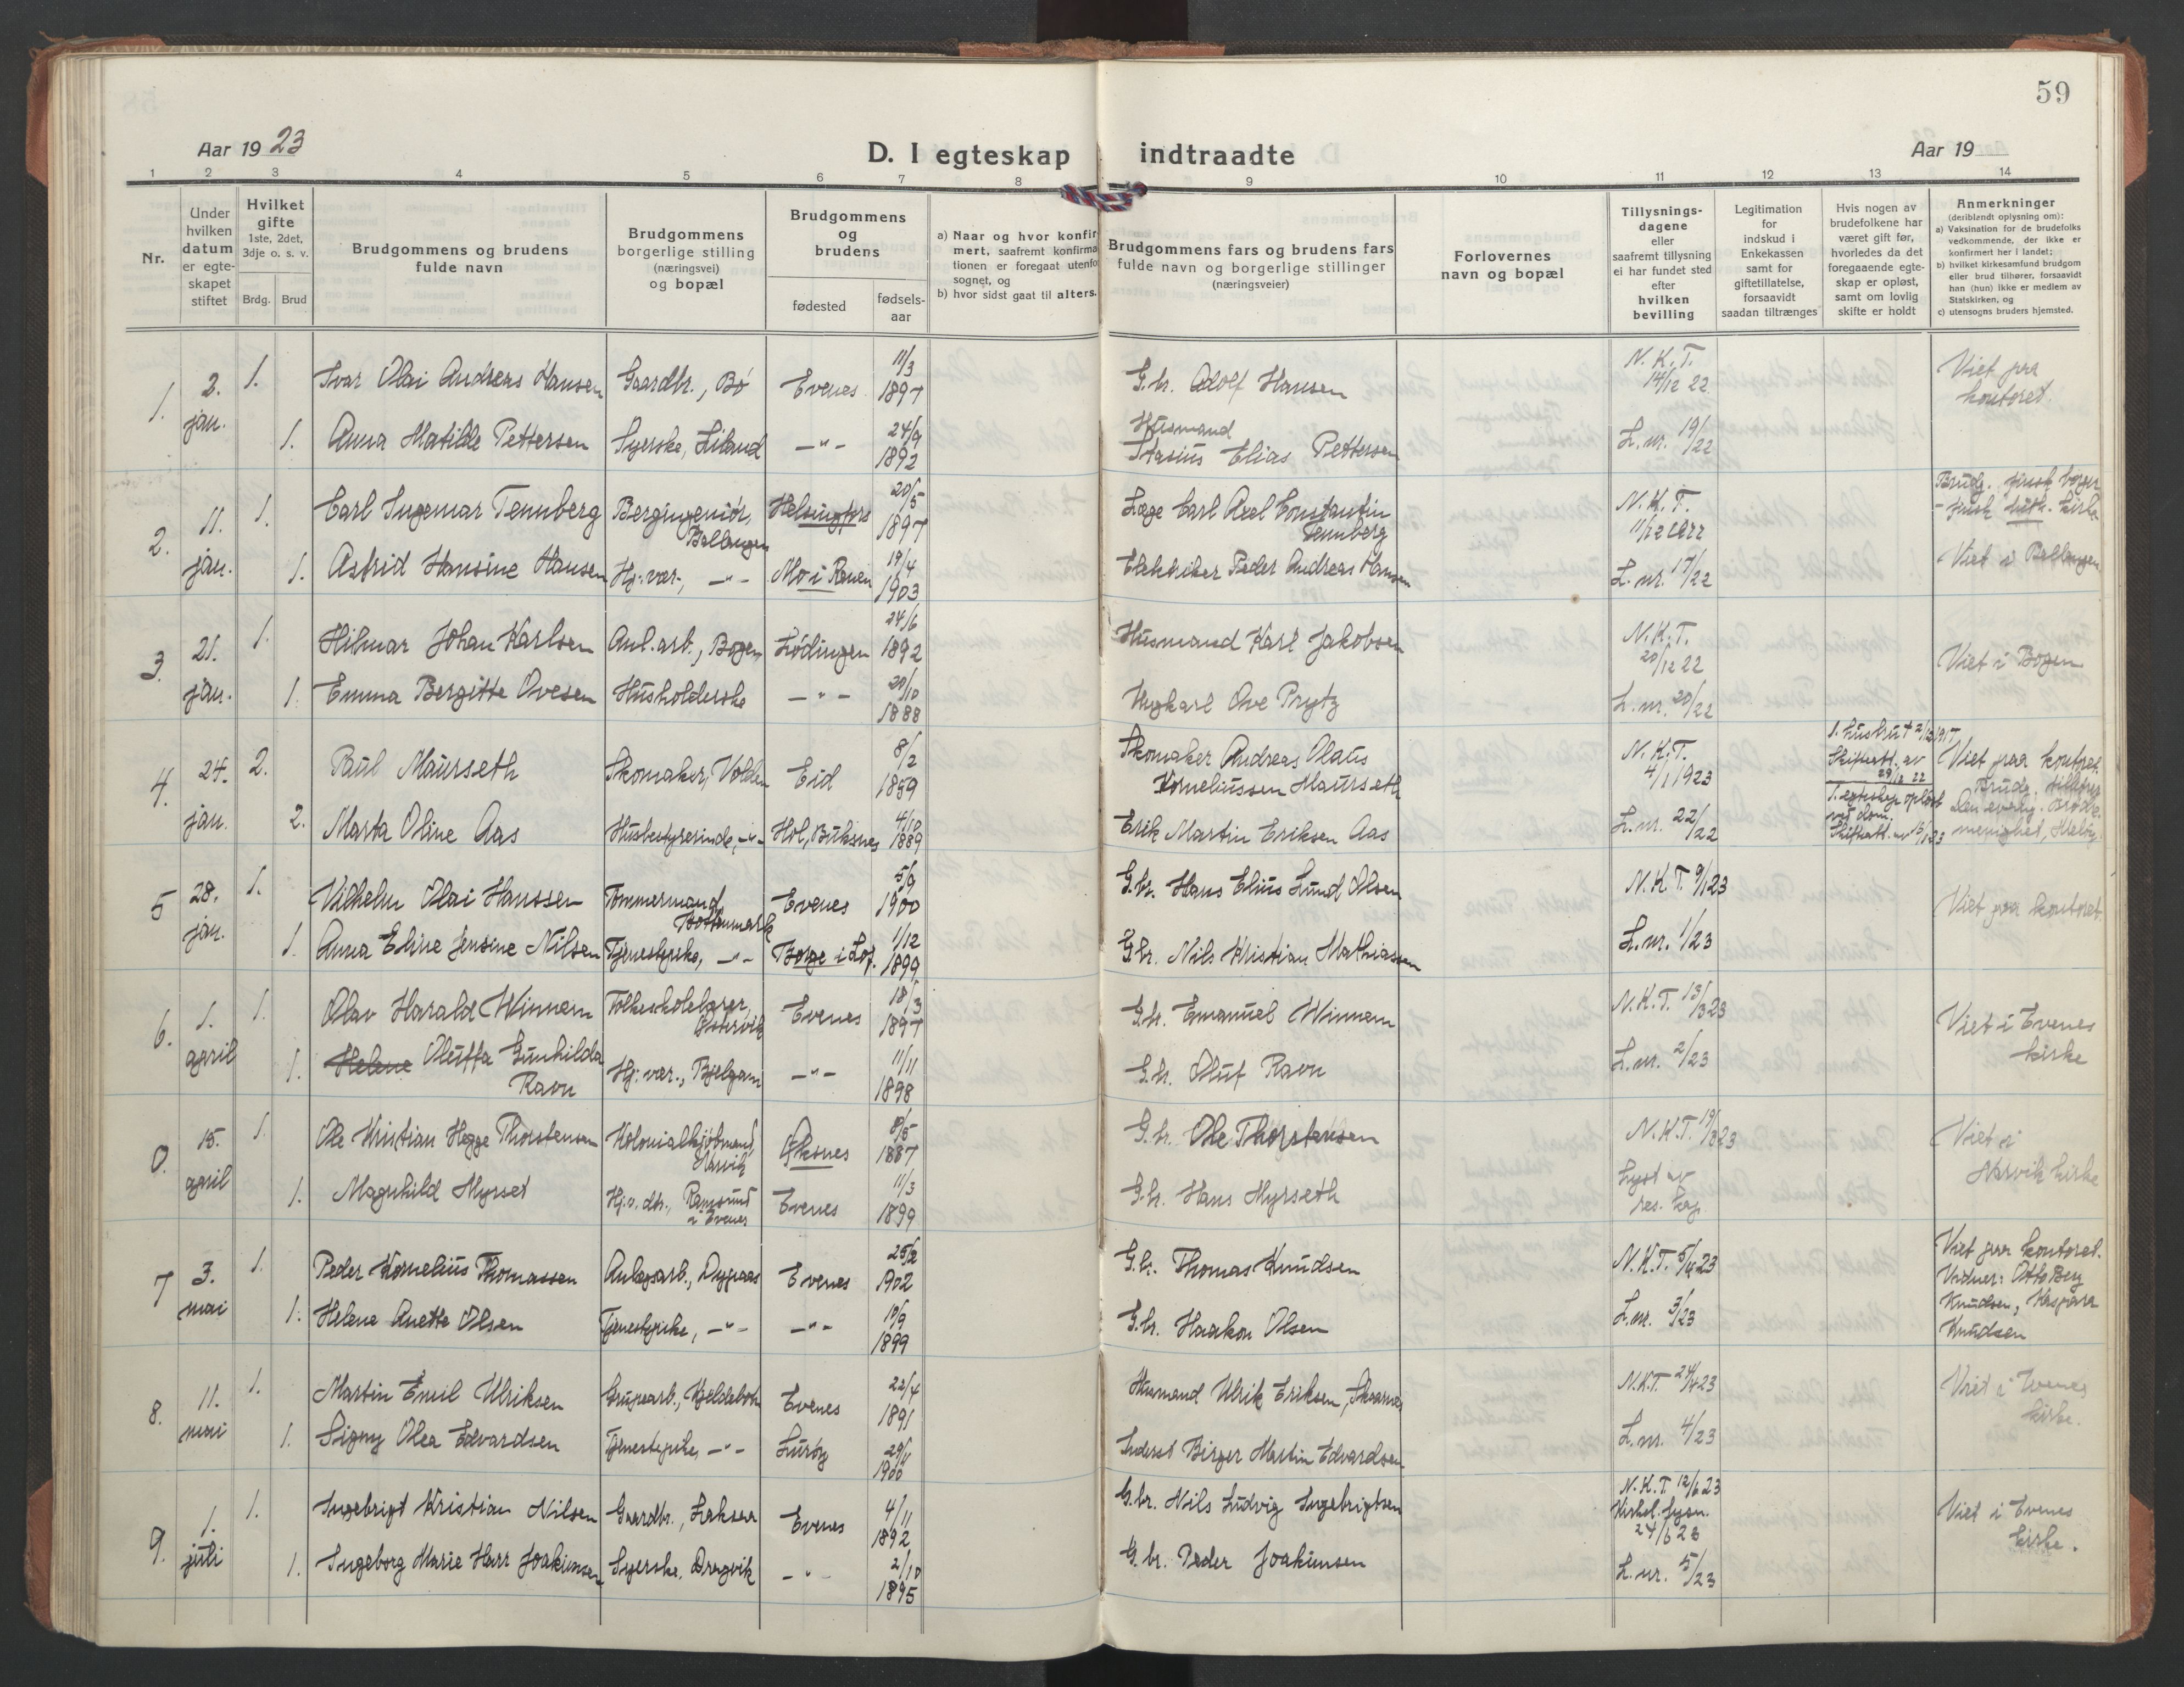 59
Aar 1923
D. I egteskap indtraadte
Aar 19
1 2 3 4 5 6 7 8 9 10 11 12 13 14
Nr.
Under hvilken datum er egteskapet stiftet
Hvilket gifte 1ste, 2det, 3dje o. s. v.
Brdg. Brud
Brudgommens og brudens fulde navn
Brudgommens borgerlige stilling (næringsvei) og bopæl
Brudgommens og brudens
fødested fødsels-aar
a) Naar og hvor konfir
mert, saafremt konfirma
tionen er foregaat utenfo
sognet, og
b) hvor sidst gaat til alters.
Brudgommens fars og brudens fars
fulde navn og borgerlige stillinger
(næringsveier)
Forlovernes
navn og bopæl
Tillysnings-
dagene
eller
saafremt tillysning
ei har fundet sted
efter
hvilken
bevilling
Legitimation
for
indskud i
Enkekassen
samt for
giftetillatelse,
forsaavidt
saadan tiltrænges
Hvis nogen av
brudefolkene har
været gift før,
hvorledes da det
foregaaende egte-
skap er opløst,
samt om lovlig
skifte er holdt
Anmerkninger
(deriblandt oplysning om):
a) Vaksination for de brudefolks
vedkommende, der ikke er
konfirmert her i landet;
b) hvilket kirkesamfund brudgom
eller brud tilhører, forsaavidt
han (hun) ikke er medlem av
Statskirken, og
c) utensogns bruders hjemsted.
1. 2. jan. 1. Ivar Olai Andreas Hansen Gaardbr., Bø Evenes 11/3 1897 G.br. Adolf Hansen N.K.T. 14/12 22 Viet paa kontoret.
1. Anna Matilde Pettersen Syerske, Liland -"- 24/9 1892 Husmand Stasius Elias Pettersen L.nr. 19/22
2. 11. jan. 1. Carl Ingemar Tennberg Bergingeniør, Ballangen Helsingfors 20/5 1897 Læge Carl Axel Constantin Tennberg N.K.T. 11/12 1922 Brudg. finsk borger - finsk luth. kirke
1. Astrid Hansine Hansen Hj. vær., -"- Mo i Ranen 19/4 1903 Elektriker Peder Andreas Hansen L.nr. 17/22 Viet i Ballangen
3. 21. jan. 1. Hilmar Johan Karlsen Anl.arb., Bogen Lødingen 24/6 1892 Husmand Karl Jakobsen N.K.T. 20/12 22 Viet i Bogen
1. Emma Bergitte Ovesen Husholderske -"- 20/10 1888 Ungkarl Ove Prytz L.nr. 20/22
4. 24. jan. 2. Paul Maurseth Skomaker, Volden Eid 8/2 1859 Skomaker Andreas Olaus Korneliussen Maurseth N.K.T. 4/1 1923 1. hustru † 2/12 1917, Skifteatt. av 29/12 22 Viet paa kontoret.
2. Marta Oline Aas Husbestyrerinde, -"- Hol, Buksnes 4/10 1889 Erik Martin Eriksen Aas L.nr. 22/22 1. egteskap opløst ved dom. Skifteatt. av 15/1 23 Brudg. tilhører Den evang. menighet,
5 28. jan. 1. Vilhelm Olai Hanssen Tømmermand, Bottenmark Evenes 5/9 1900 G.br. Hans Elius Lund Olsen N.K.T. 9/1 23 Viet paa kontoret.
1. Anna Eline Jensine Nilsen Tjenestepike, -"- Borge i Lof. 1/12 1899 G.br. Nils Kristian Mathiassen L.nr. 1/23
6. 1. april 1. Olav Harald Winnem Folkeskolelærer, Østervik Evenes 18/3 1897 G.br. Emanuel Winnem N.K.T. 13/3 23 Viet i Evenes kirke
1. Helene Oluffa Gunhilda Ravn Hj. vær., Bjelgam -"- 11/11 1898 G.br. Oluf Ravn L.nr. 2/23
0. 15. april 1. Ole Kristian Hegge Thorstensen Kolonialkjøbmand, Narvik Øksnes 8/5 1887 G.br. Ole Thorstensen N.K.T. 19/3 23 Viet i Narvik kirke
1. Magnhild Myrset Hj.v. dtr., Ramsund i Evenes Evenes 11/3 1899 G.br. Hans Myrseth Lyst av res. kap.
7 3. mai 1. Peder Kornelius Thomassen Anlegsarb., Dypaas Evenes 25/2 1902 G.br. Thomas Knudsen N.K.T. 5/4 23 Viet paa kontoret. Vidner: Otto Berg Knudsen, Kaspara Knudsen
1. Helene Anette Olsen Tjenestepike, -"- -"- 19/9 1899 G.br. Haakon Olsen L.nr. 3/23
8. 11. mai 1. Martin Emil Ulriksen Grupearb., Kjeldebotn Evenes 22/4 1891 Husmand Ulrik Eriksen, Skarnes N.K.T. 24/4 23 Viet i Evenes kirke.
1. Signy Olea Edvardsen Tjenestepike, -"- Lurøy 29/11 1900 Inderst Birger Martin Edvardsen L.nr. 4/23
9. 1. juli 1. Ingebrigt Kristian Nilsen Gaardbr., Laksaa Evenes 4/11 1892 G.br. Nils Ludvig Ingebrigtsen N.K.T. 12/6 23 Kirkel. lysn. 24/6 23 Viet i Evenes kirke.
1. Ingeborg Marie Harr Joakimsen Syerske, Dragvik -"- 2/10 1895 G.br. Peder Joakimsen L.nr. 5/23